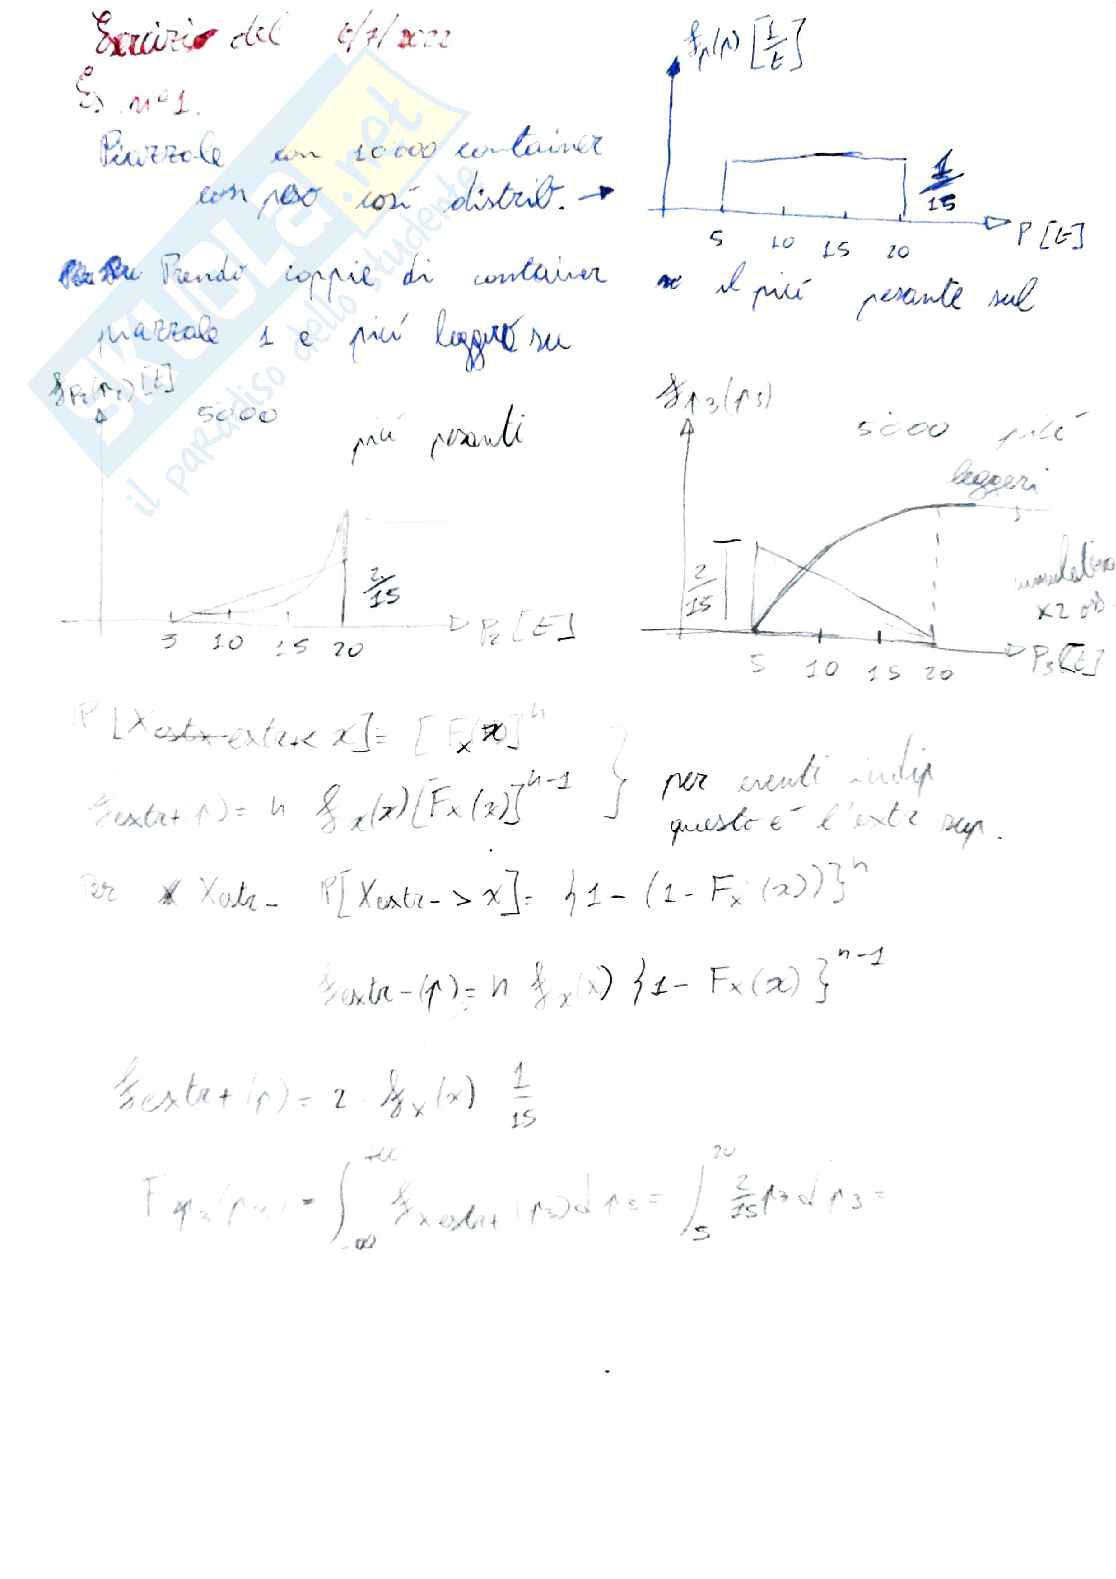 Esercizio del 6/7/2022
Es. n°1.
Piazzale con 10000 container
con peso così distrib. →
f_p(p) [1/t]
1/15
5 10 15 20 P [t]
Prendo coppie di container il più pesante sul
piazzale 1 e più leggero su
f_{P2}(p_2) [t]
5000
più pesanti
2/15
5 10 15 20 P_2 [t]
f_{p3}(p_3)
5000 più
leggeri
2/15
cumulativa
x2
5 10 15 20 P_3 [t]
P[X extr+ < x] = [F_x(x)]^n
f extr+(p) = n f_x(x) [F_x(x)]^{n-1} } per eventi indip
questo è l'extr sup.
Per X extr- P[X extr- > x] = {1 - (1 - F_x(x))}^n
f extr-(p) = n f_x(x) {1 - F_x(x)}^{n-1}
f extr+(p) = 2 · f_x(x) 1/15
= ∫_{-∞}^{+∞} f_{x extr+}(p_3) dp_3 = ∫_5^{20} 2/15 p_3 dp_3 =
SKUOLA.net
il paradiso dello studente